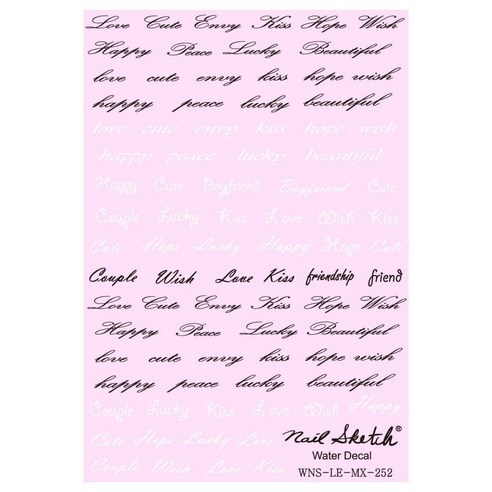 Love Cute Envy Kiss Hope Wish
Happy Peace Lucky Beautiful
love cute envy kiss hope wish
happy peace lucky beautiful
love cute envy kiss Hope wish
happy peace lucky beautiful
Happy Cute Boyfriend Boyfriend Cute
Couple Lucky Kiss Love Wish Kiss
Cute Hope Lucky Happy Hope Cute
Couple Wish Love Kiss friendship friend
Love Cute Envy Kiss Hope Wish
Happy Peace Lucky Beautiful
love cute envy kiss hope wish
happy peace lucky beautiful
Couple Lucky Kiss Love Wish Kiss Happy
Cute Hope Lucky Love
Nail Sketch®
Couple Wish Love Kiss
Water Decal
WNS-LE-MX-252